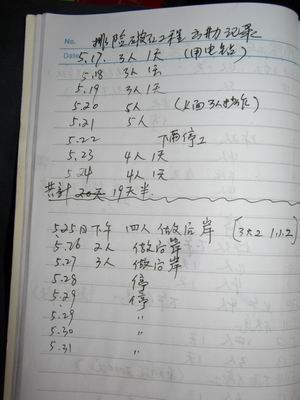 No. 排险破石工程 出勤记录
Date 5.17. 3人1天 (用电钻)
5.18 3人1天
5.19 3人1天
5.20 5人 (上面3人
5.21 5人
5.22 下雨停工
5.23 4人1天
5.24 4人1天
共计 19天半
5.25日下午 四人做后岸 [3大2
5.26 2人 做后岸
5.27 3人 做后岸
5.28 停
5.29 停
5.29 〃
5.30 〃
5.31 〃